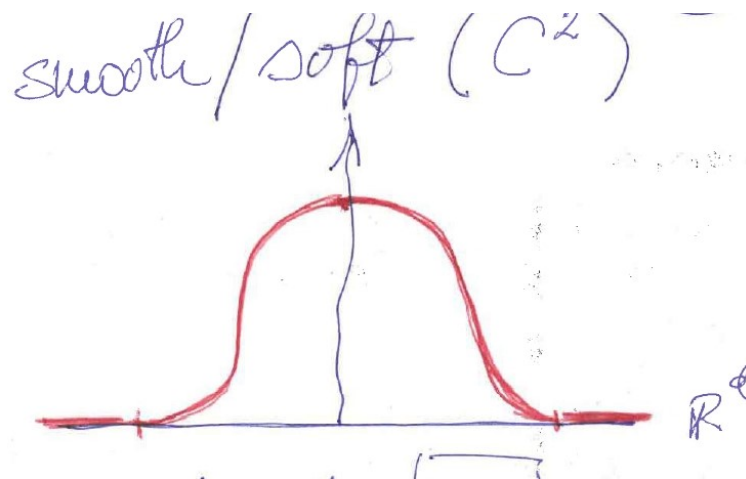 smooth/soft (C²)
ℝ